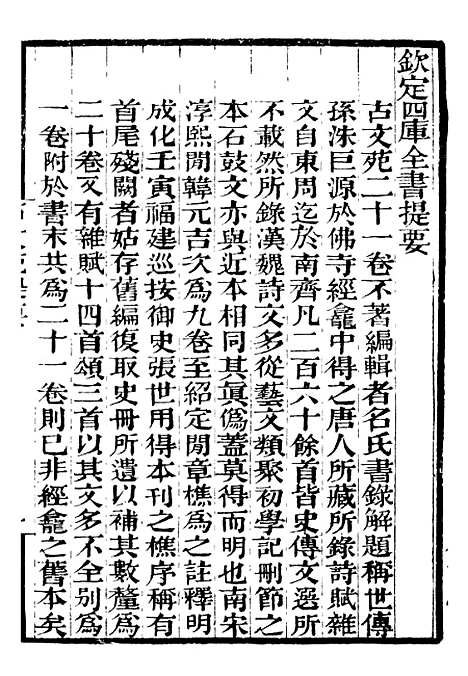 欽定四庫全書提要
古文苑二十一卷不著編輯者名氏書錄解題稱世傳
孫洙巨源於佛寺經龕中得之唐人所藏所錄詩賦雜
文自東周迄於南齊凡二百六十餘首皆史傳文選所
不載然所錄漢魏詩文多從藝文類聚初學記刪節之
本石鼓文亦與近本相同其眞僞蓋莫得而明也南宋
淳熙閒韓元吉次為九卷至紹定閒章樵為之註釋明
成化壬寅福建巡按御史張世用得本刊之樵序稱有
首尾殘闕者姑存舊編復取史冊所遺以補其數釐為
二十卷又有雜賦十四首頌三首以其文多不全別為
一卷附於書末共為二十一卷則已非經龕之舊本矣